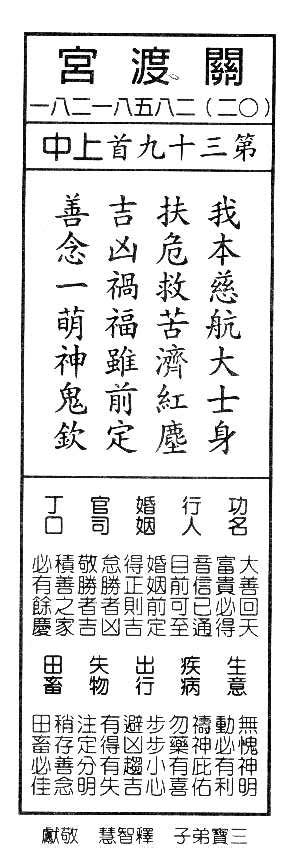 關渡宮
(〇二)二八五八一二八一
第三十九首上中
我本慈航大士身
扶危救苦濟紅塵
吉凶禍福雖前定
善念一萌神鬼欽
功名
大善回天
富貴必得
行人
音信已通
目前可至
婚姻
婚姻前定
得正則吉
官司
怠勝者凶
敬勝者吉
丁口
積善之家
必有餘慶
生意
無愧神明
動必有利
疾病
禱神庇佑
勿藥有喜
出行
步步小心
避凶趨吉
失物
有得有失
注定分明
田畜
稍存善念
田畜必佳
三寶弟子 釋智慧 敬獻